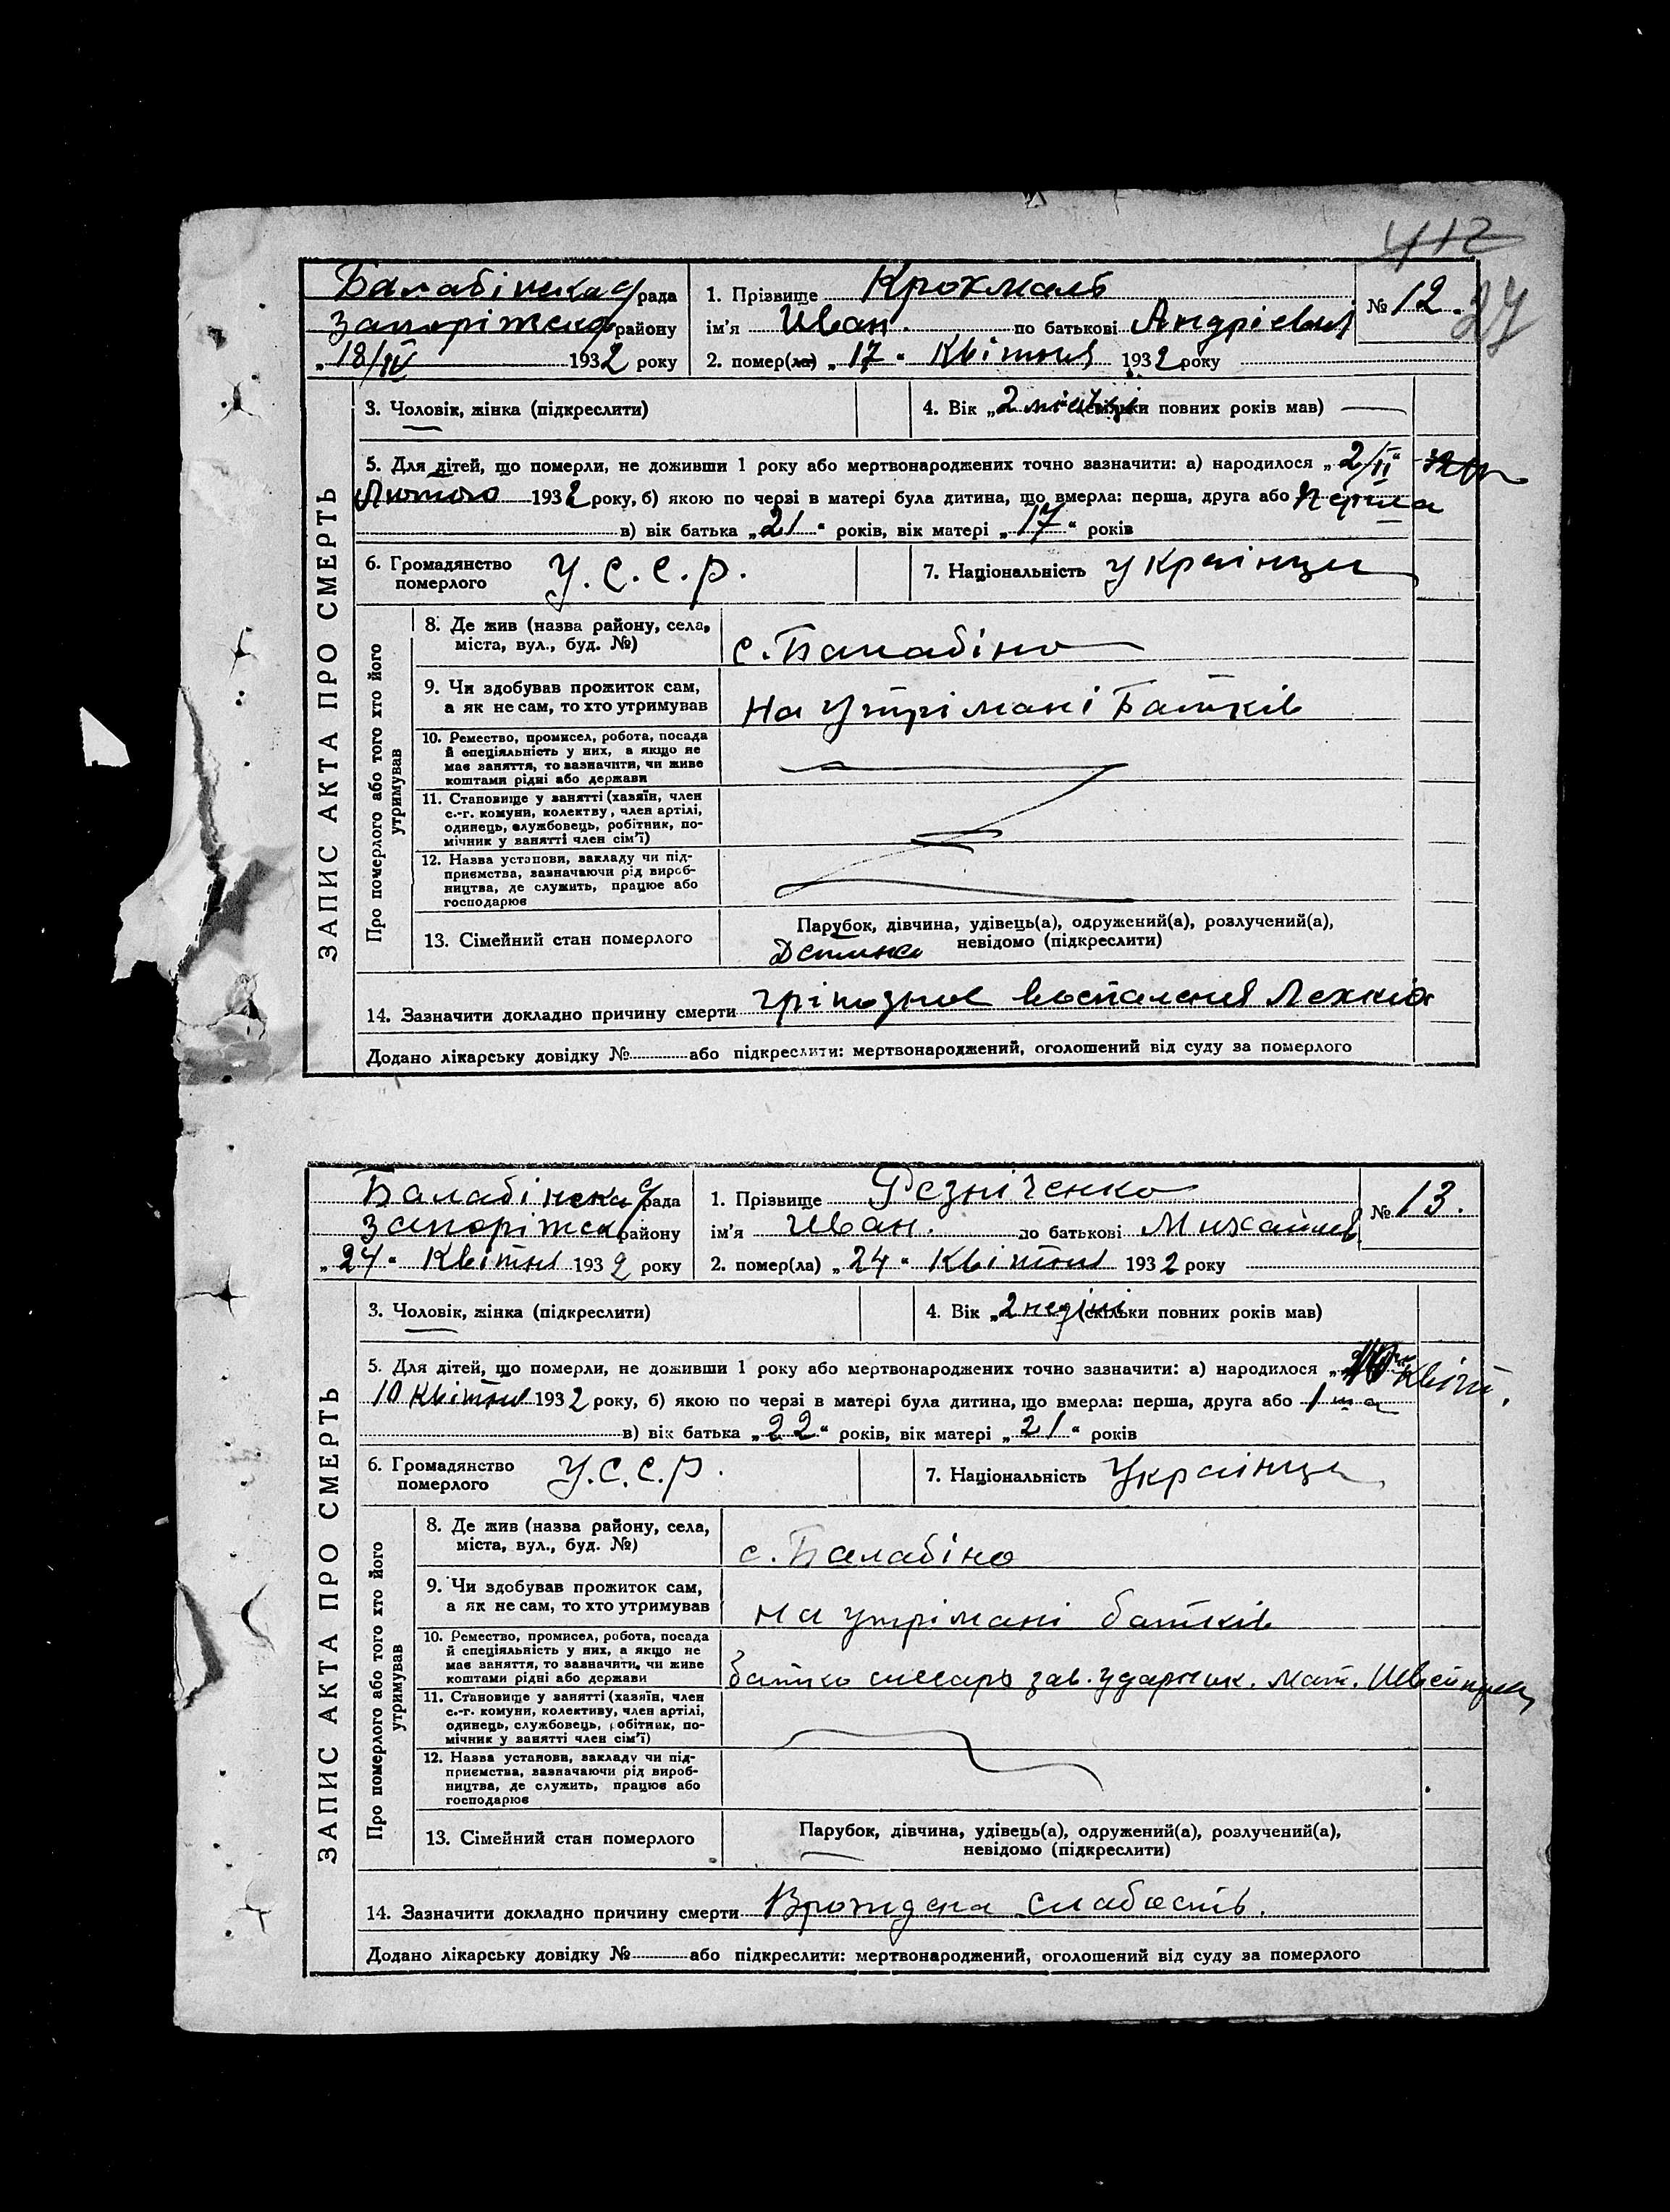 412
27
Балабінська рада
Запоріжськ району
„18/IV 1932 року
1. Прізвище Крохмаль
ім'я Иван. по батькові Андрієвич
2. помер(ла) „17" Квітня 1932 року
№ 12.
ЗАПИС АКТА ПРО СМЕРТЬ
3. Чоловік, жінка (підкреслити)
4. Вік „2 місяці (скільки повних років мав)
5. Для дітей, що померли, не доживши 1 року або мертвонароджених точно зазначити: а) народилося „2/II"
Лютого 1932 року, б) якою по черзі в матері була дитина, що вмерла: перша, друга або перша
в) вік батька „21" років, вік матері „17" років
6. Громадянство померлого У.С.С.Р.
7. Національність Українец
Про померлого або того хто його утримував
8. Де жив (назва району, села,
міста, вул., буд. №) с. Балабіно
9. Чи здобував прожиток сам,
а як не сам, то хто утримував На утрімані Батків
10. Ремество, промисел, робота, посада
й спеціяльність у них, а якщо не
має заняття, то зазначити, чи живе
коштами рідні або держави
11. Становище у занятті (хазяїн, член
с.-г. комуни, колективу, член артілі,
одинець, службовець, робітник, по-
мічник у занятті член сім'ї)
12. Назва установи, закладу чи під-
приємства, зазначаючи рід вироб-
ництва, де служить, працює або
господарює
13. Сімейний стан померлого
Парубок, дівчина, удівець(а), одружений(а), розлучений(а),
невідомо (підкреслити)
Детинка
14. Зазначити докладно причину смерти гріпозное воспаления Лехких
Додано лікарську довідку № або підкреслити: мертвонароджений, оголошений від суду за померлого
Балабінська рада
Запоріжськ району
„24" Квітня 1932 року
1. Прізвище Резніченко
ім'я Иван. по батькові Михайлов
2. помер(ла) „24" Квітня 1932 року
№ 13.
ЗАПИС АКТА ПРО СМЕРТЬ
3. Чоловік, жінка (підкреслити)
4. Вік „2 неділі (скільки повних років мав)
5. Для дітей, що померли, не доживши 1 року або мертвонароджених точно зазначити: а) народилося „ Квітн.
10 Квітня 1932 року, б) якою по черзі в матері була дитина, що вмерла: перша, друга або 1ша
в) вік батька „22" років, вік матері „21" років
6. Громадянство померлого У.С.С.Р.
7. Національність Украінец
Про померлого або того хто його утримував
8. Де жив (назва району, села,
міста, вул., буд. №) с. Балабіно
9. Чи здобував прожиток сам,
а як не сам, то хто утримував На утрімані батків
10. Ремество, промисел, робота, посада
й спеціяльність у них, а якщо не
має заняття, то зазначити, чи живе
коштами рідні або держави Батько слесарь зав. ударник. мат.
11. Становище у занятті (хазяїн, член
с.-г. комуни, колективу, член артілі,
одинець, службовець, робітник, по-
мічник у занятті член сім'ї)
12. Назва установи, закладу чи під-
приємства, зазначаючи рід вироб-
ництва, де служить, працює або
господарює
13. Сімейний стан померлого
Парубок, дівчина, удівець(а), одружений(а), розлучений(а),
невідомо (підкреслити)
14. Зазначити докладно причину смерти Врождена слабость.
Додано лікарську довідку № або підкреслити: мертвонароджений, оголошений від суду за померлого